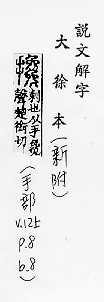 說文解字
大徐本(新附)
攙 刺也从手毚
聲楚銜切
(手部
V.12上
P.8
b.8)